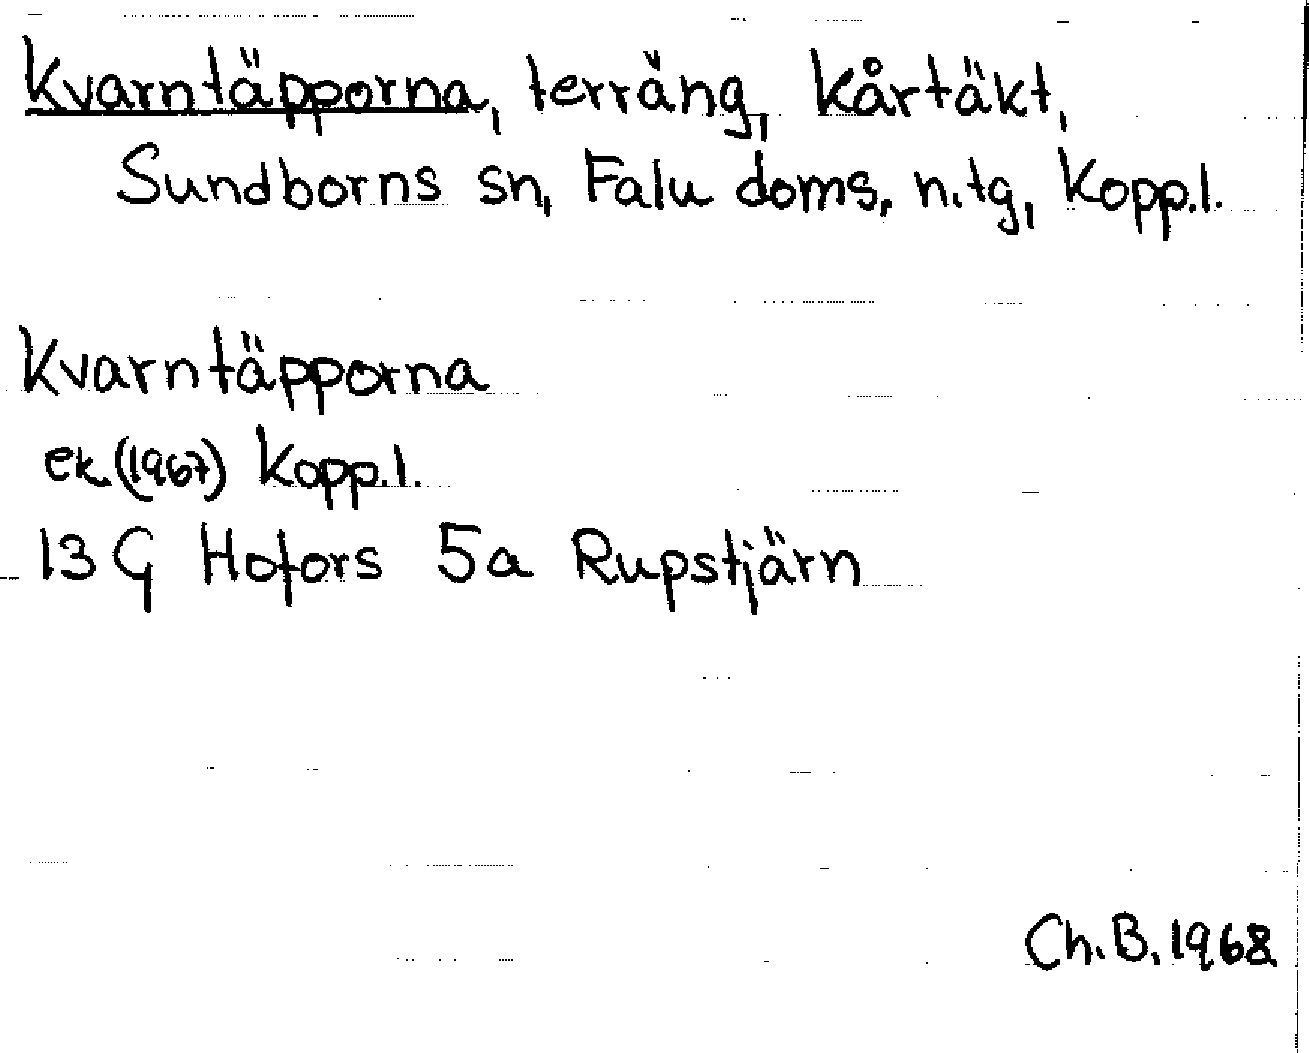 Kvarntäpporna, terräng, Kårtäkt,
Sundborns sn, Falu doms, n.tg, Kopp.l.
Kvarntäpporna
ek. (1967) Kopp.l.
13 G Hofors 5a Rupstjärn
Ch. B. 1968